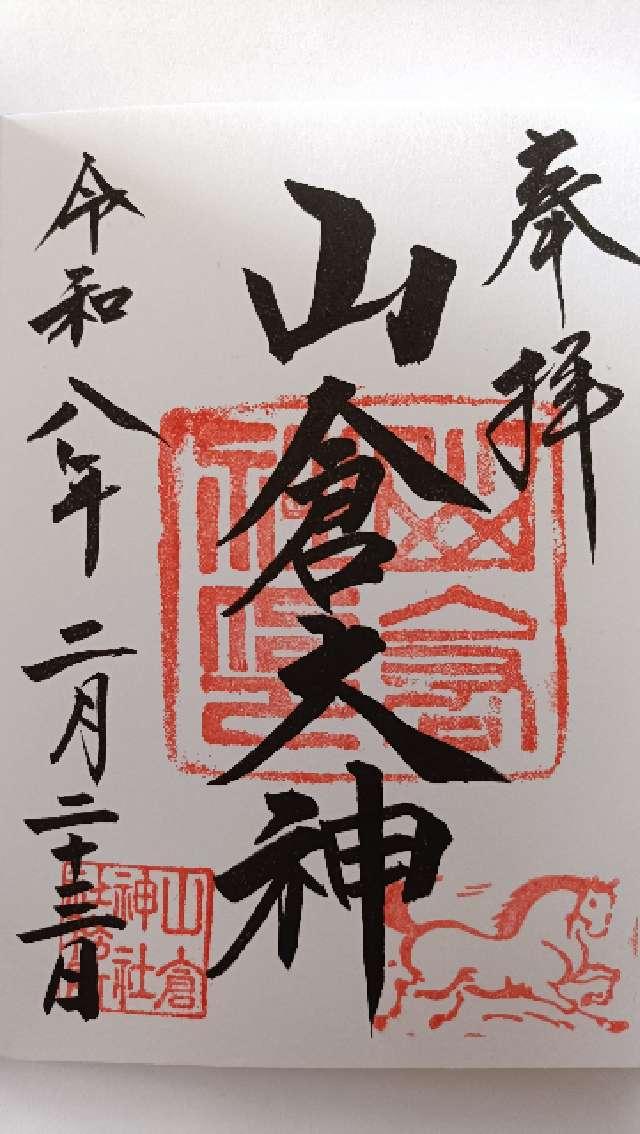 奉拝
山倉大神
令和八年二月二十三日
山倉
神社
社務所